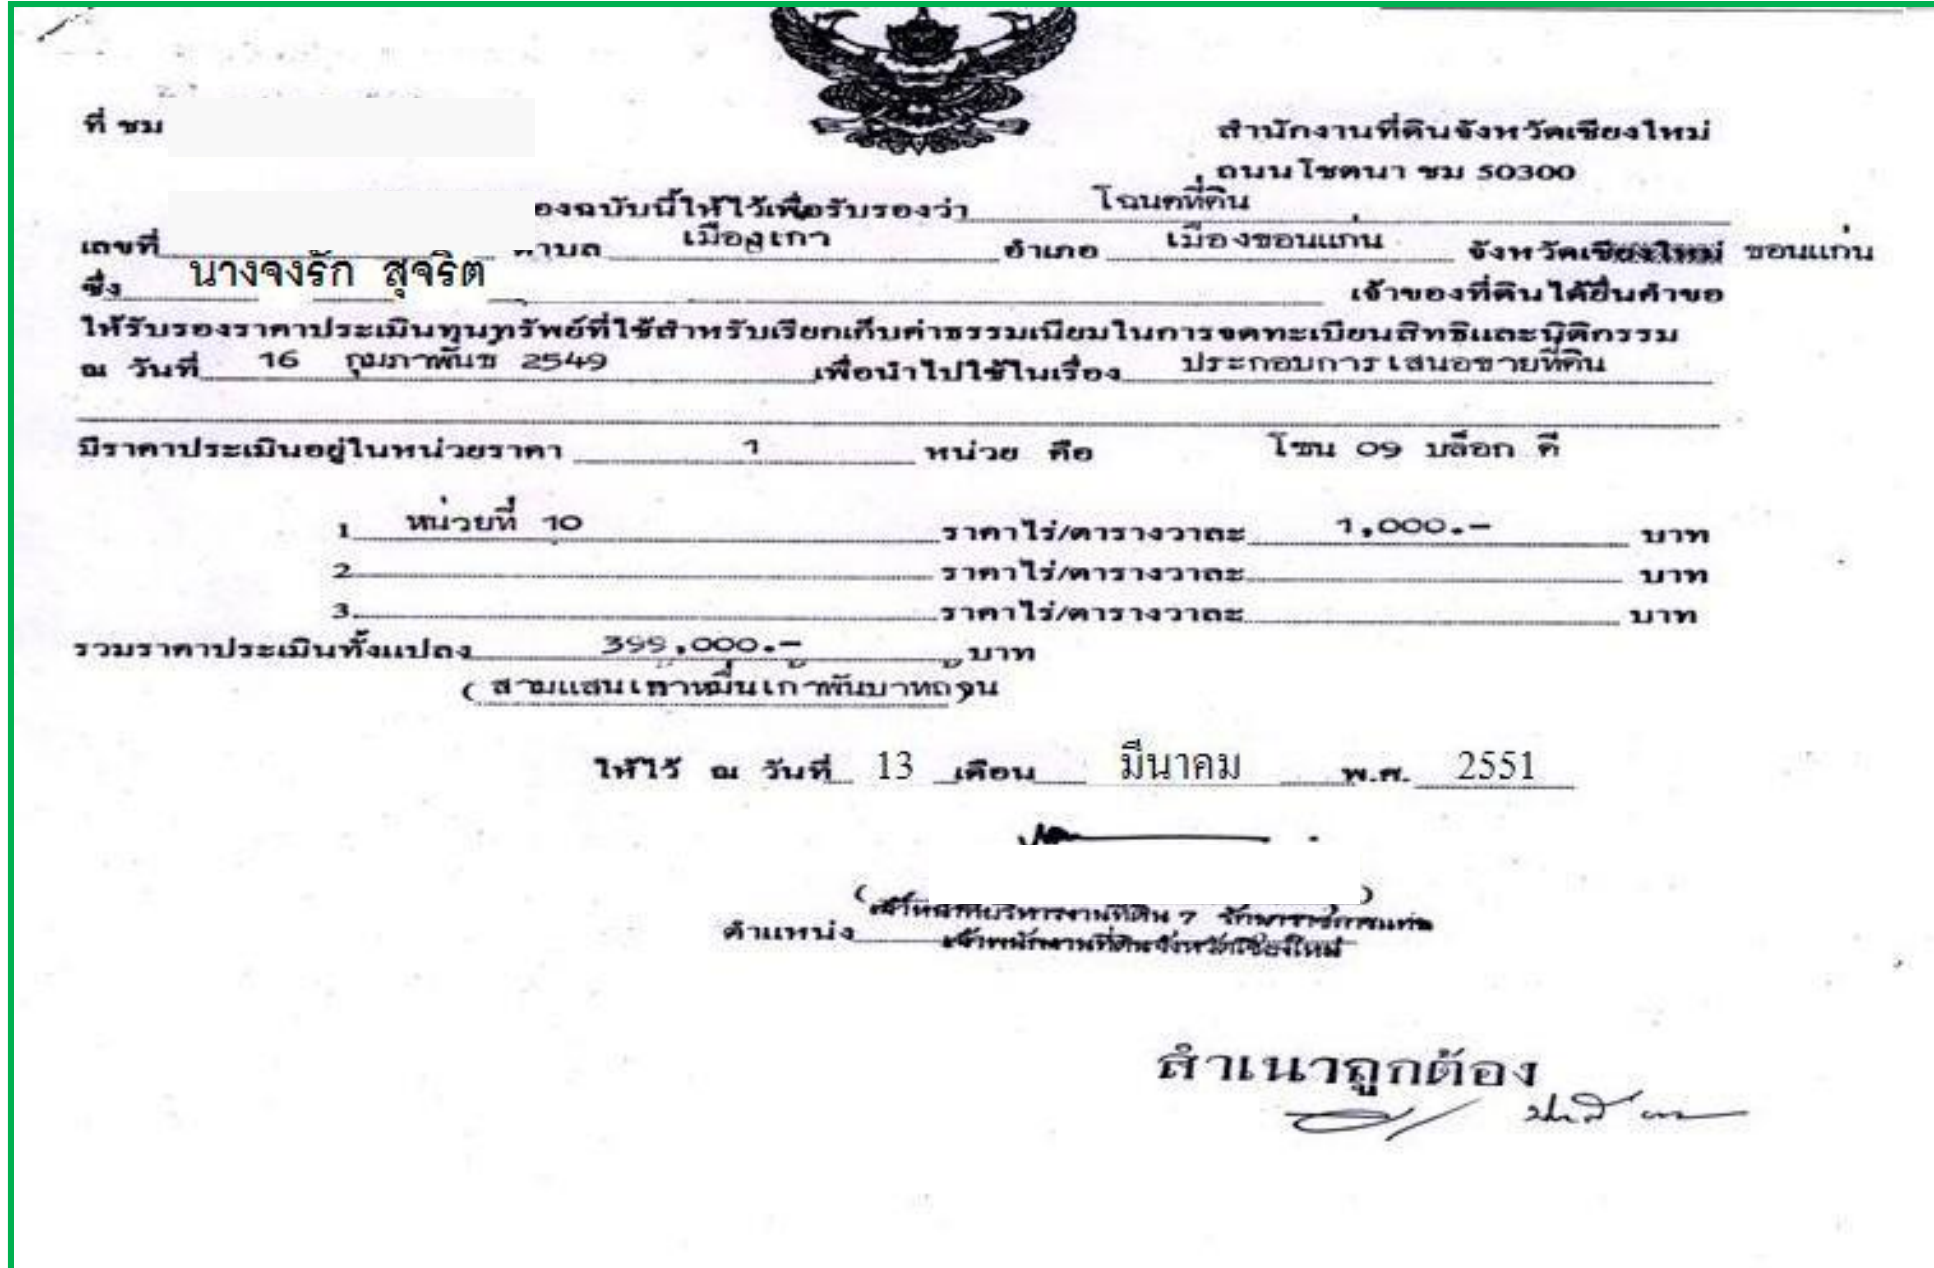 ที่ ชม
สำนักงานที่ดินจังหวัดเชียงใหม่
ถนนโชตนา ชม 50300
องฉบับนี้ให้ไว้เพื่อรับรองว่า โฉนดที่ดิน
เลขที่ ตำบล เมืองเก่า อำเภอ เมืองขอนแก่น จังหวัดเชียงใหม่ ขอนแก่น
ซึ่ง นางจงรัก สุจริต เจ้าของที่ดินได้ยื่นคำขอ
ให้รับรองราคาประเมินทุนทรัพย์ที่ใช้สำหรับเรียกเก็บค่าธรรมเนียมในการจดทะเบียนสิทธิและนิติกรรม
ณ วันที่ 16 กุมภาพันธ 2549 เพื่อนำไปใช้ในเรื่อง ประกอบการเสนอขายที่ดิน
มีราคาประเมินอยู่ในหน่วยราคา 1 หน่วย คือ โซน 09 บล็อก ดี
1 หน่วยที่ 10 ราคาไร่/ตารางวาละ 1,000.- บาท
2 ราคาไร่/ตารางวาละ บาท
3 ราคาไร่/ตารางวาละ บาท
รวมราคาประเมินทั้งแปลง 399,000.- บาท
( สามแสนเก้าหมื่นเก้าพันบาทถ้วน
ให้ไว้ ณ วันที่ 13 เดือน มีนาคม พ.ศ. 2551
( )
เจ้าหน้าที่บริหารงานที่ดิน 7 รักษาราชการแทน
ตำแหน่ง เจ้าพนักงานที่ดินจังหวัดเชียงใหม่
สำเนาถูกต้อง